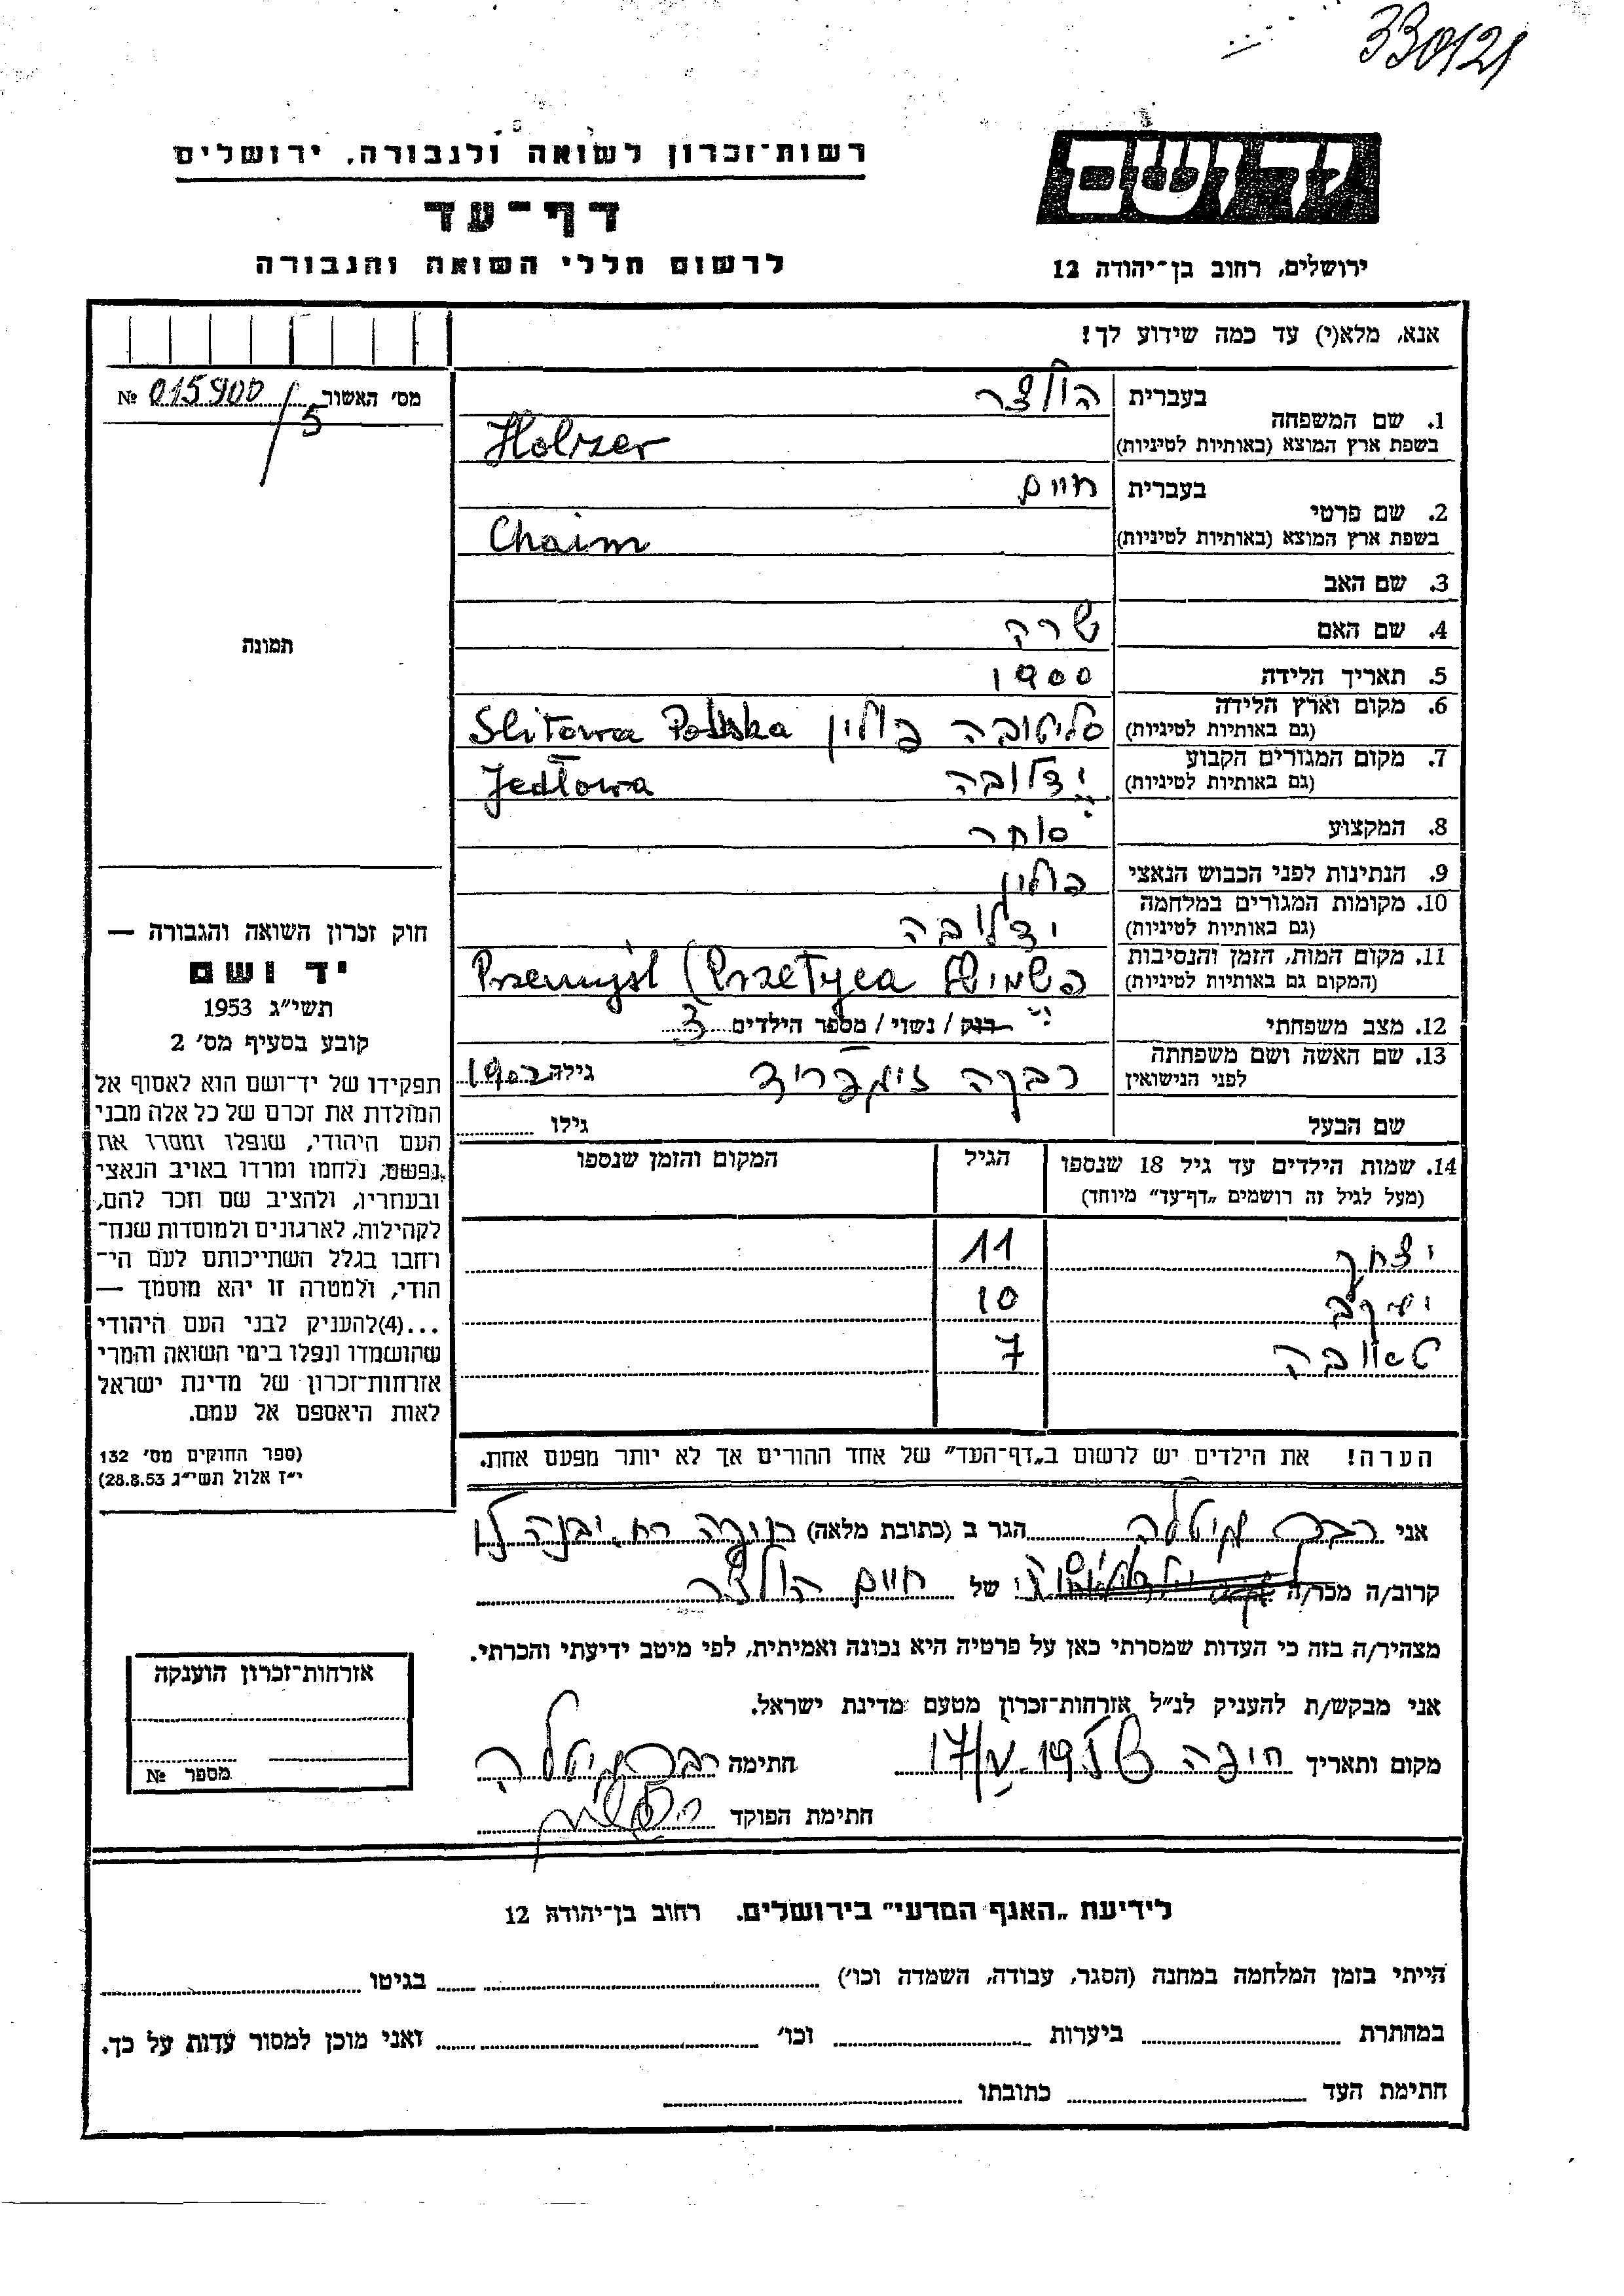 330121
רשות־זכרון לשואה ולגבורה, ירושלים
יד ושם
דף־עד
לרשום חללי השואה והגבורה
ירושלים, רחוב בן־יהודה 12
אנא, מלא(י) עד כמה שידוע לך!
מס׳ האשור № 015900/5
1. שם המשפחה
בעברית הולצר
בשפת ארץ המוצא (באותיות לטיניות) Holzer
2. שם פרטי
בעברית חיים
בשפת ארץ המוצא (באותיות לטיניות) Chaim
3. שם האב
4. שם האם שרה
תמונה
5. תאריך הלידה 1900
6. מקום וארץ הלידה (גם באותיות לטיניות) סליטובה פולין Slitowa Polska
7. מקום המגורים הקבוע (גם באותיות לטיניות) ידלובה Jedłowa
8. המקצוע סוחר
9. הנתינות לפני הכבוש הנאצי פולין
10. מקומות המגורים במלחמה (גם באותיות לטיניות) ידלובה
11. מקום המות, הזמן והנסיבות (המקום גם באותיות לטיניות) פשמישל Przemyśl (Przetyca
12. מצב משפחתי רווק / נשוי / מספר הילדים 3
13. שם האשה ושם משפחתה לפני הנישואין רבקה זיגפריד גילה 1902
שם הבעל גילו
חוק זכרון השואה והגבורה —
יד ושם
תשי״ג 1953
קובע בסעיף מס׳ 2
תפקידו של יד־ושם הוא לאסוף אל
המולדת את זכרם של כל אלה מבני
העם היהודי, שנפלו ומסרו את
נפשם, נלחמו ומרדו באויב הנאצי
ובעוזריו, ולהציב שם וזכר להם,
לקהילות, לארגונים ולמוסדות שנח־
רחבו בגלל השתייכותם לעם הי־
הודי, ולמטרה זו יהא מוסמך —
...(4)להעניק לבני העם היהודי
שהושמדו ונפלו בימי השואה והמרי
אזרחות־זכרון של מדינת ישראל
לאות היאספם אל עמם.
(ספר החוקים מס׳ 132
י״ז אלול תשי״ג 28.8.53)
14. שמות הילדים עד גיל 18 שנספו הגיל המקום והזמן שנספו
(מעל לגיל זה רושמים „דף־עד״ מיוחד)
יצחק 11
יעקב 10
טאובה 7
הערה! את הילדים יש לרשום ב„דף־העד״ של אחד ההורים אך לא יותר מפעם אחת.
אני הגר ב (כתובת מלאה) חיפה רח. יבנה
קרוב/ה מכר/ה של חיים הולצר
מצהיר/ה בזה כי העדות שמסרתי כאן על פרטיה היא נכונה ואמיתית, לפי מיטב ידיעתי והכרתי.
אני מבקש/ת להעניק לנ״ל אזרחות־זכרון מטעם מדינת ישראל.
מקום ותאריך חיפה חתימה
חתימת הפוקד
אזרחות־זכרון הוענקה
מספר №
לידיעת „האגף המדעי״ בירושלים. רחוב בן־יהודה 12
הייתי בזמן המלחמה במחנה (הסגר, עבודה, השמדה וכו׳) בגיטו
במחתרת ביערות וכו׳ ואני מוכן למסור עדות על כך.
חתימת העד כתובתו